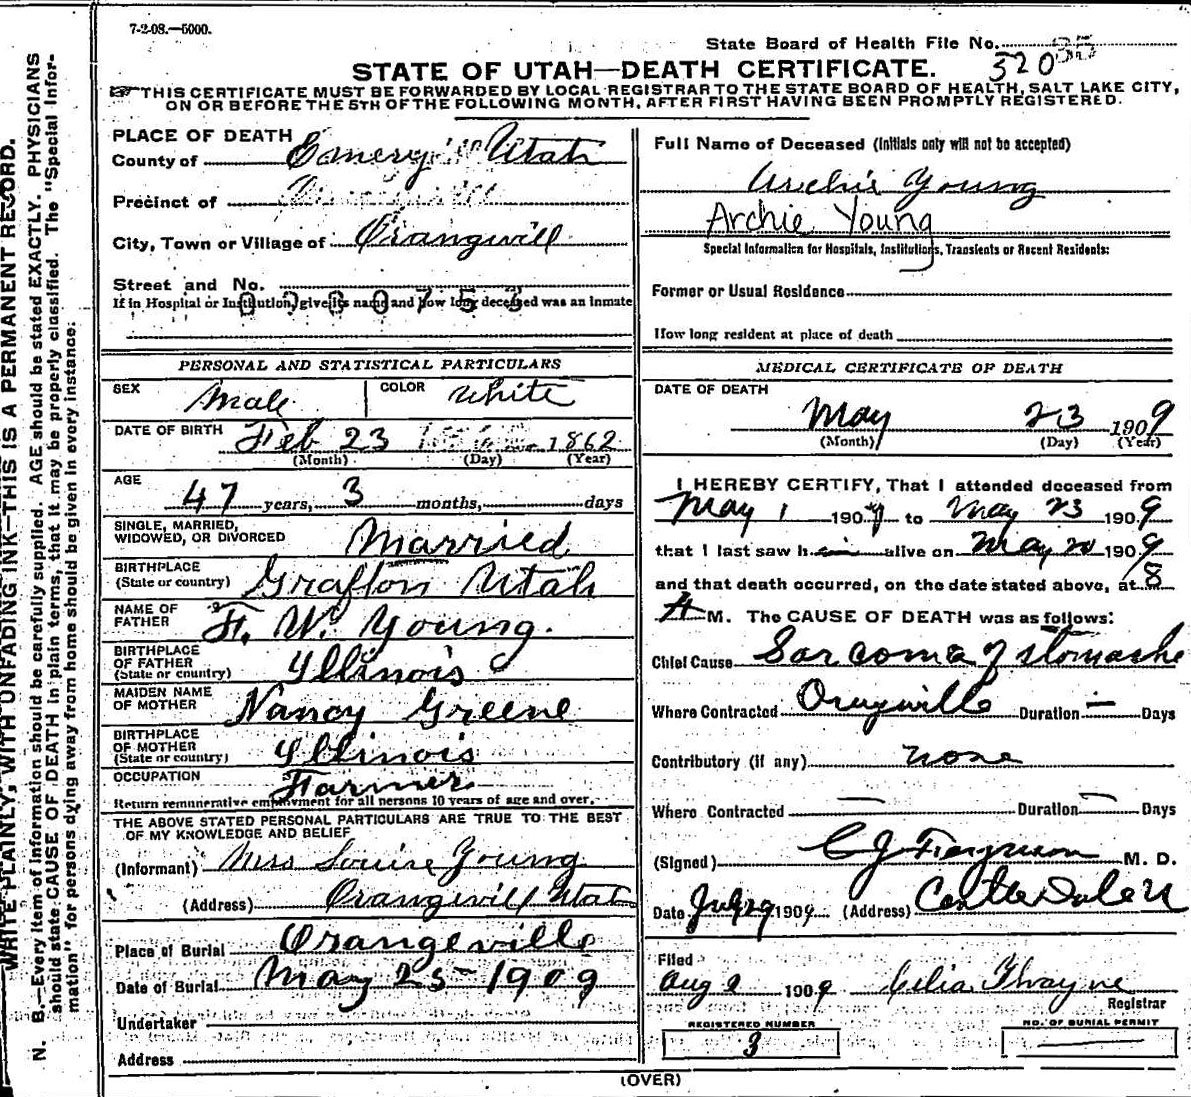 7-2-08.—5000.
State Board of Health File No. 35
320
STATE OF UTAH—DEATH CERTIFICATE.
THIS CERTIFICATE MUST BE FORWARDED BY LOCAL REGISTRAR TO THE STATE BOARD OF HEALTH, SALT LAKE CITY,
ON OR BEFORE THE 5TH OF THE FOLLOWING MONTH, AFTER FIRST HAVING BEEN PROMPTLY REGISTERED.
WRITE PLAINLY, WITH UNFADING INK—THIS IS A PERMANENT RECORD.
N. B.—Every item of information should be carefully supplied. AGE should be stated EXACTLY. PHYSICIANS
should state CAUSE OF DEATH in plain terms, that it may be properly classified. The "Special Infor-
mation" for persons dying away from home should be given in every instance.
PLACE OF DEATH
County of Emery Utah
Precinct of
City, Town or Village of Orangwill
Street and No.
If in Hospital or Institution, give its name and how long deceased was an inmate
PERSONAL AND STATISTICAL PARTICULARS
SEX Male COLOR White
DATE OF BIRTH Feb 23 1862
(Month) (Day) (Year)
AGE
47 years, 3 months, days
SINGLE, MARRIED,
WIDOWED, OR DIVORCED Married
BIRTHPLACE
(State or country) Grafton Utah
NAME OF
FATHER F. W. Young.
BIRTHPLACE
OF FATHER
(State or country) Illinois
MAIDEN NAME
OF MOTHER Nancy Greene
BIRTHPLACE
OF MOTHER
(State or country) Illinois
OCCUPATION Farmer
Return remunerative employment for all persons 10 years of age and over.
THE ABOVE STATED PERSONAL PARTICULARS ARE TRUE TO THE BEST
OF MY KNOWLEDGE AND BELIEF
(Informant) Mrs Louise Young
(Address) Orangevill Utah
Place of Burial Orangeville
Date of Burial May 25 1909
Undertaker
Address
Full Name of Deceased (Initials only will not be accepted)
Archie Young
Archie Young
Special Information for Hospitals, Institutions, Transients or Recent Residents:
Former or Usual Residence
How long resident at place of death
MEDICAL CERTIFICATE OF DEATH
DATE OF DEATH
May 23 1909
(Month) (Day) (Year)
I HEREBY CERTIFY, That I attended deceased from
May 1 1909 to May 23 1909
that I last saw him alive on May 20 1909
and that death occurred, on the date stated above, at 8
A M. The CAUSE OF DEATH was as follows:
Chief Cause Sarcoma of stomache
Where Contracted Orngville Duration — Days
Contributory (if any) none
Where Contracted — Duration — Days
(Signed) C J Ferguson M. D.
Date July 29 1909 (Address) Castle Dale U
Filed
Aug 2 1909 Celia Thrayne
Registrar
REGISTERED NUMBER
3
NO. OF BURIAL PERMIT
(OVER)